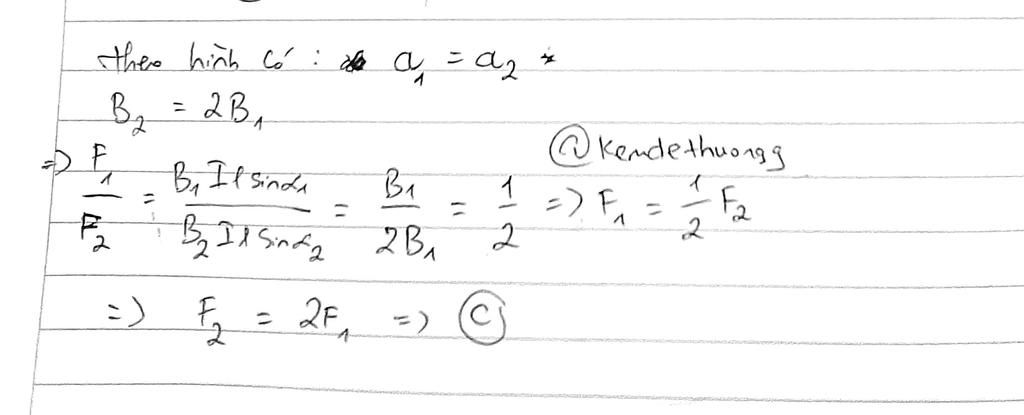 theo hình có : a₁ = a₂
B₂ = 2B₁
@kemdethuongg
=> F₁/F₂ = B₁Iℓsinα₁/B₂Iℓsinα₂ = B₁/2B₁ = 1/2 => F₁ = 1/2 F₂
=> F₂ = 2F₁ => C